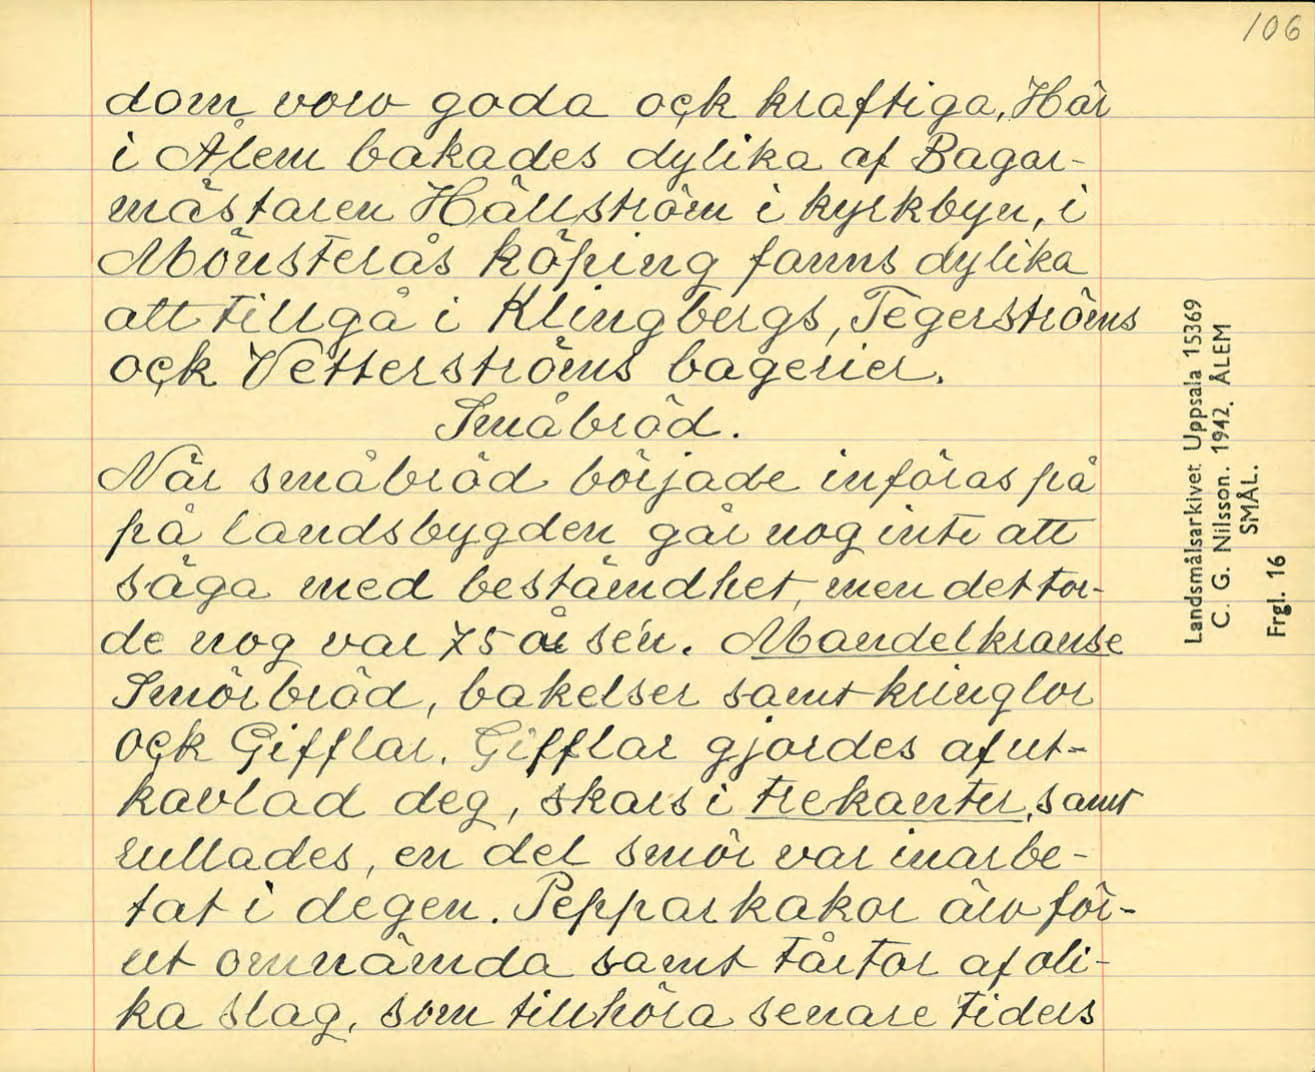 106
dom voro goda oçk kraftiga, Här
i Ålem bakades dylika af Bagar-
mästaren Hällström i kyrkbyn, i
Mönsterås köping fanns dylika
att tillgå i Klingbergs, Tegerströms
oçk Vetterströms bagerier.
Småbröd.
När småbröd började införas på
på landsbygden går nog inte att
säga med bestämdhet, men det tor-
de nog var 75 år sén. Mandelkranse
Smörbröd, bakelser samt kringlor
oçk Gifflar. Gifflar gjordes af ut-
kavlad deg, skars i trekanter, samt
rullades, en del smör var inarbe-
tat i degen. Pepparkakor äro för-
ut omnämda samt tårtor af oli-
ka slag, som tillhöra senare tiders
Landsmålsarkivet Uppsala 15369
C. G. Nilsson. 1942. ÅLEM
SMÅL.
Frgl. 16